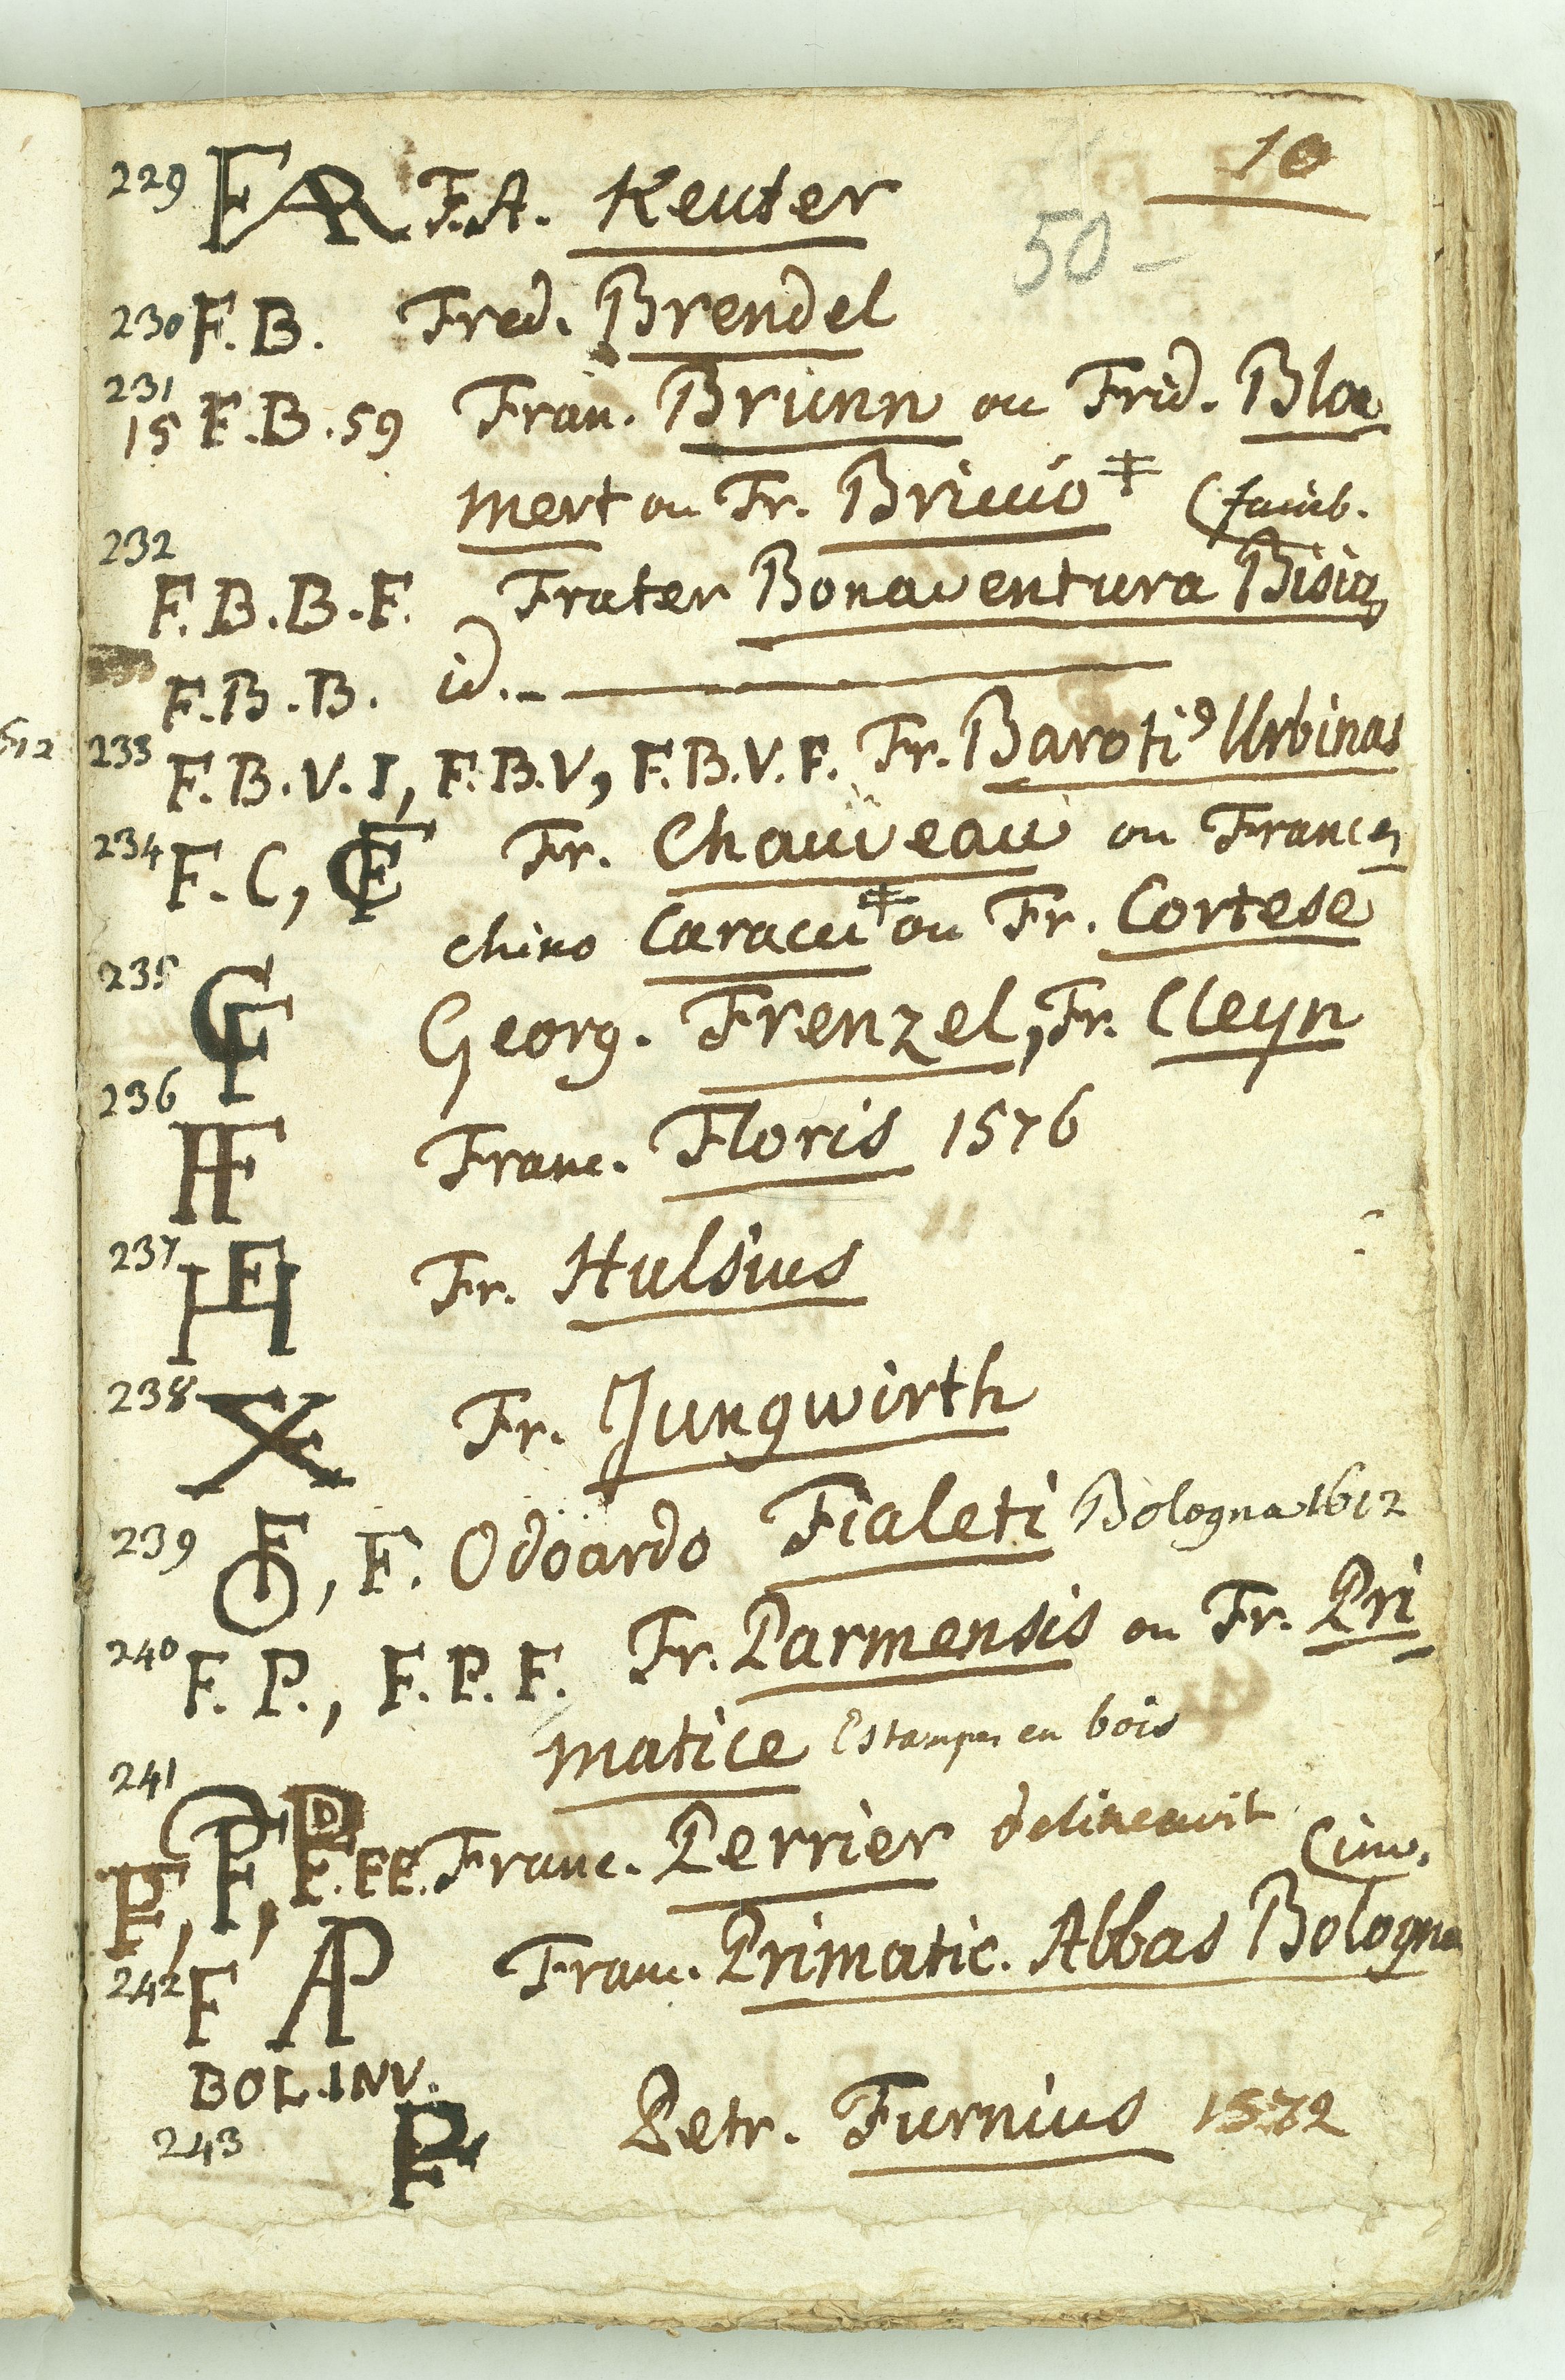 10
50 -
229 FAR F.A. Keuter
230 F.B. Fred. Brendel
231
15 F.B. 59 Fran. Brunn ou Frid. Bloe
mert ou Fr. Briccio ‡
232
F.B.B.F. Frater Bonaventura Bisig
F.B.B. id.
233 F.B.V.I, F.B.V, F.B.V.F. Fr. Baroti9 Urbinas
234 F.C, CF Fr. Chauveau ou Frances
chino Caracci ‡ ou Fr. Cortese
235 Georg. Frenzel, Fr. Cleyn
236 Franc. Floris 1576
237 Fr. Hulsius
238 Fr. Jungwirth
239 , F. Odoardo Fialeti Bologna 1612
240 F.P., F.P.F. Fr. Parmensis ou Fr. Pri
matice Estampes en bois
241
Franc. Perrier delineavit
(inv.
242 F AP Franc. Primatic. Abbas Bologna
BOL.INV.
243 Petr. Furnius 1572